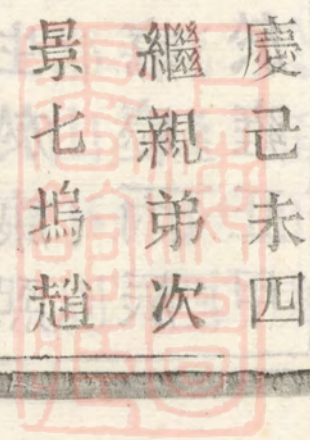 慶己未四
繼親弟次
景七塢趙